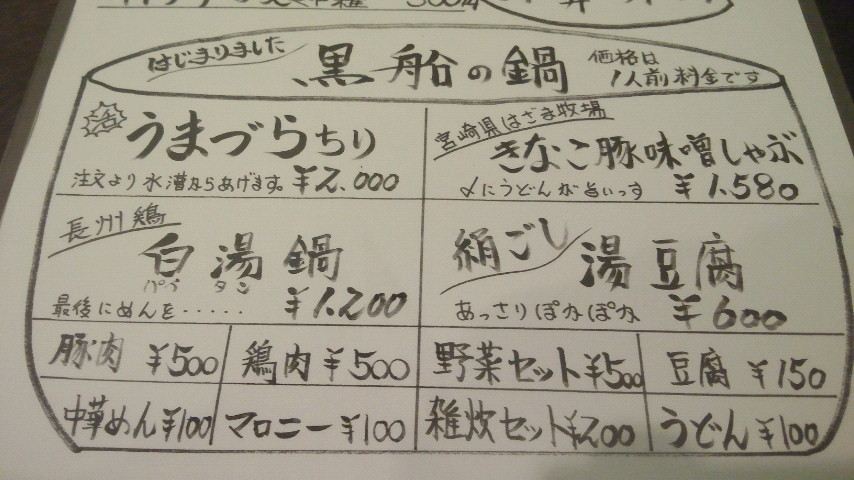 はじまりました
黒船の鍋
価格は
1人前料金です
うまづらちり
注文より水漕からあげます。¥2,000
宮崎県はざま牧場
きなこ豚味噌しゃぶ
〆にうどんが合いっす ¥1,580
長州鶏
白湯鍋
パイ タン
最後にめんを・・・・・ ¥1,200
絹ごし湯豆腐
あっさりぽかぽか ¥600
豚肉 ¥500
鶏肉 ¥500
野菜セット ¥500
豆腐 ¥150
中華めん ¥100
マロニー ¥100
雑炊セット ¥200
うどん ¥100